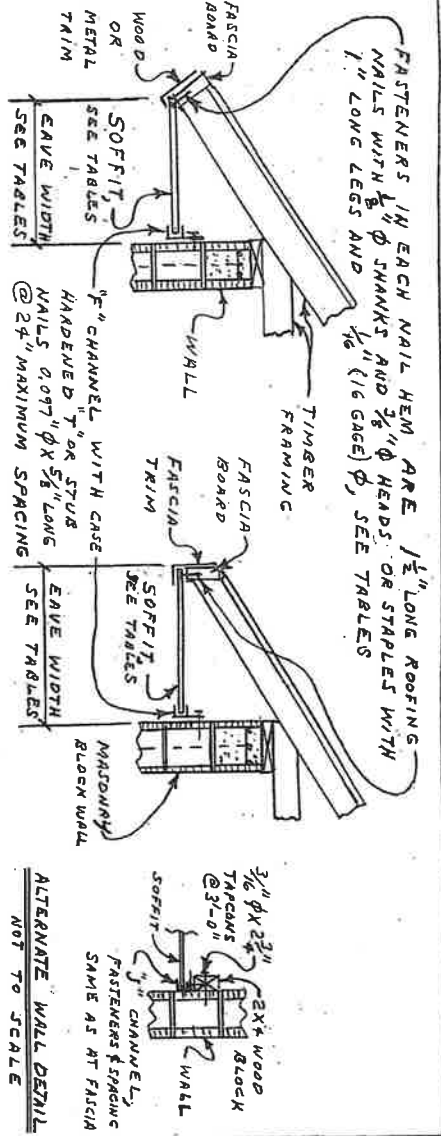 FASTENERS IN EACH NAIL HEM ARE 1 1/2" LONG ROOFING
NAILS WITH 1/8" Φ SHANKS AND 3/8" Φ HEADS OR STAPLES WITH
1" LONG LEGS AND 1/16" (16 GAGE) Φ, SEE TABLES
FASCIA
BOARD
WOOD
OR
METAL
TRIM
SOFFIT,
SEE TABLES
EAVE WIDTH
SEE TABLES
WALL
TIMBER
FRAMING
"F" CHANNEL WITH CASE
HARDENED "T" OR STUB
NAILS 0.097" Φ X 5/8" LONG
@ 24" MAXIMUM SPACING
FASCIA
BOARD
FASCIA
TRIM
SOFFIT,
SEE TABLES
EAVE WIDTH
SEE TABLES
MASONRY
BLOCK WALL
3/16" Φ X 2 3/4"
TAPCONS
@ 3'-0"
SOFFIT
2X4 WOOD
BLOCK
WALL
"J" CHANNEL,
FASTENERS & SPACING
SAME AS AT FASCIA
ALTERNATE WALL DETAIL
NOT TO SCALE